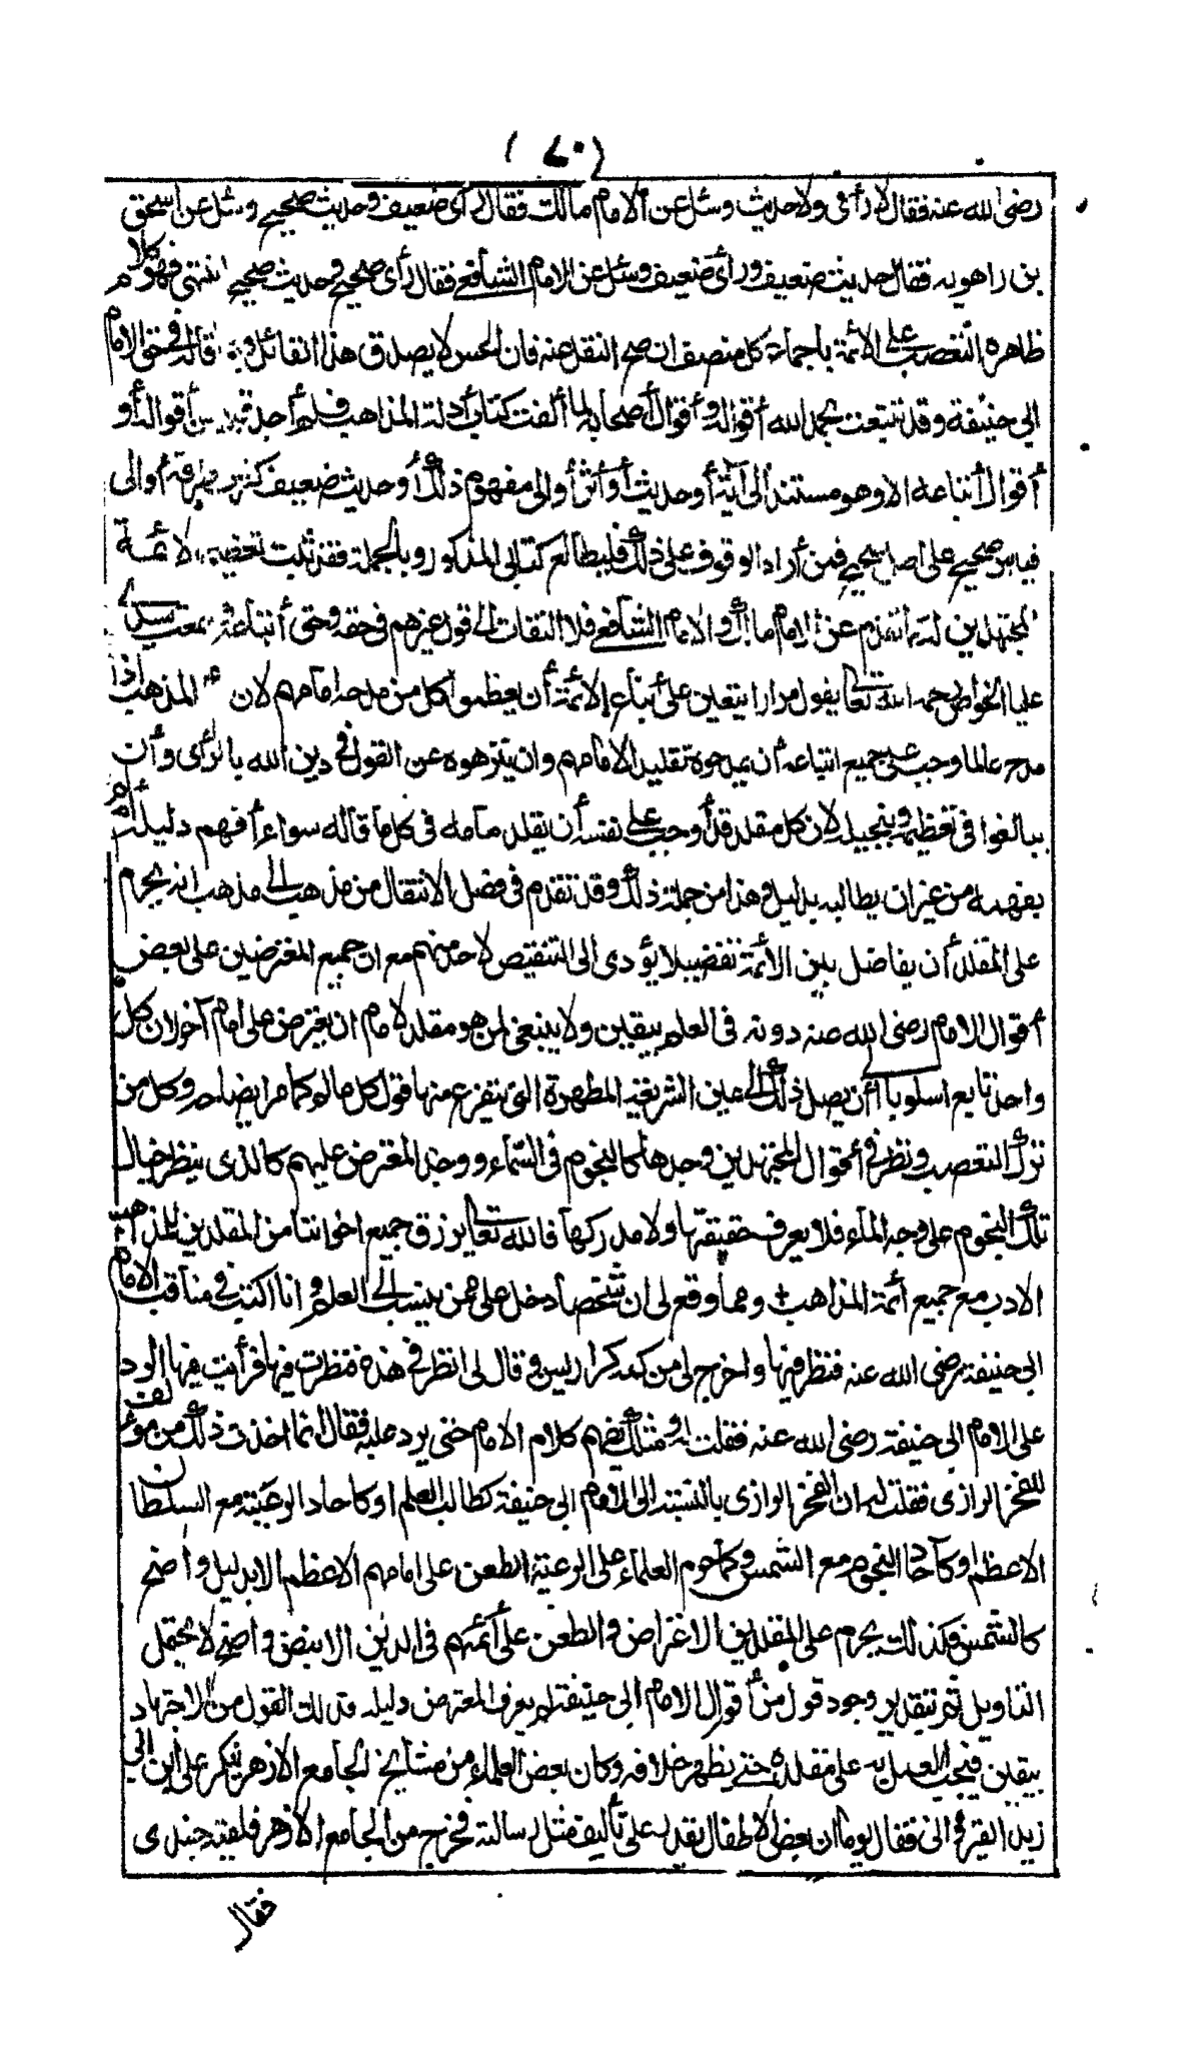 (٧٠)
رضى الله عنه فقال لا رأى ولا حديث وسئل عن الامام مالك فقال رأى ضعيف وحديث صحيح وسئل عن اسحق
بن راهويه فقال حديث ضعيف ورأى ضعيف وسئل عن الامام الشافعى فقال رأى صحيح وحديث صحيح انتهى فهو كلام
ظاهره التعصب على الائمة باجماع كل منصف ان صح النقل عنه فان الحس لا يصدق هذا القائل فيما قاله فى حق الامام
ابى حنيفة وقد تتبعت بحمد الله أقواله وأقوال أصحابه لما ألفت كتاب أدلة المذاهب فلم أجد قولا من أقواله أو
أقوال أتباعه الا وهو مستند الى آية أو حديث أو أثر أو الى مفهوم ذلك أو حديث ضعيف كثرت طرقه أو الى
قياس صحيح على اصل صحيح فمن أراد الوقوف على ذلك فليطالع كتابى المذكور وبالجملة فقد ثبت تعظيم الائمة
المجتهدين له كما تقدم عن الامام مالك والامام الشافعى فلا التفات الى قول غيرهم فى حقه وحق أتباعه وسمعت سيدى
عليا الخواص رحمه الله تعالى يقول مرارا يتعين على أتباع الائمة أن يعظموا كل من مدحه امامهم لان امام المذهب اذا
مدح عالما وجب على جميع اتباعه أن يمدحوه تقليدا لامامهم وان ينزهوه عن القول فى دين الله بالرأى وأن
يبالغوا فى تعظيمه وتبجيله لان كل مقلد قد أوجب على نفسه أن يقلد امامه فى كل ما قاله سواء أفهم دليله أم لم
يفهمه من غير ان يطالبه بدليل وهذا من جملة ذلك وقد تقدم فى فصل الانتقال من مذهب الى مذهب انه يحرم
على المقلد أن يفاضل بين الائمة تفضيلا يؤدى الى التنقيص لاحد منهم مع ان جميع المعترضين على بعض
أقوال الامام رضى الله عنه دونه فى العلم بيقين ولا ينبغى لمن هو مقلد لامام ان يعترض على امام آخر لان كل
واحد تابع اسلوبا الى أن يصل ذلك الى عين الشريعة المطهرة التى يتفرع منها قول كل عالم كما مر ايضاحه وكل من
ترك التعصب ونظر فى أقوال المجتهدين وجدها كالنجوم فى السماء ووجد المعترض عليهم كالذى ينظر خيال
تلك النجوم على وجه الماء فلا يعرف حقيقتها ولا مدركها فالله تعالى يرزق جميع اخواننا من المقلدين للمذاهب
الادب مع جميع أئمة المذاهب ومما وقع لى ان شخصا دخل على ممن ينسب الى العلم وانا اكتب فى مناقب الامام
ابى حنيفة رضى الله عنه فنظر فيها واخرج لى من كمه كراريس وقال لى انظر فى هذه فنظرت فيها فرأيت فيها الرد
على الامام ابى حنيفة رضى الله عنه فقلت له ومثلك يفهم كلام الامام حتى يرد عليه فقال انما اخذت ذلك من مؤلف
للفخر الرازى فقلت له ان الفخر الرازى بالنسبة الى الامام ابى حنيفة كطالب العلم او كآحاد الرعية مع السلطان
الاعظم او كآحاد النجوم مع الشمس وكما حرم العلماء على الرعية الطعن على امامهم الاعظم الا بدليل واضح
كالشمس فكذلك يحرم على المقلدين الاعتراض والطعن على أئمتهم فى الدين الا بنص واضح لا يحتمل
التاويل ثم بتقدير وجود قول من أقوال الامام ابى حنيفة لم يعرف المعترض دليله فذلك القول من الاجتهاد
بيقين فيجب العمل به على مقلده حتى يظهر خلافه وكان بعض العلماء من مشايخ الجامع الازهر ينكر على ابن ابى
زيد القيروانى فقال يوما ان بعض الاطفال يقدر على تأليف مثل رسالته فخرج من الجامع الازهر فلقيه جندى
فقال